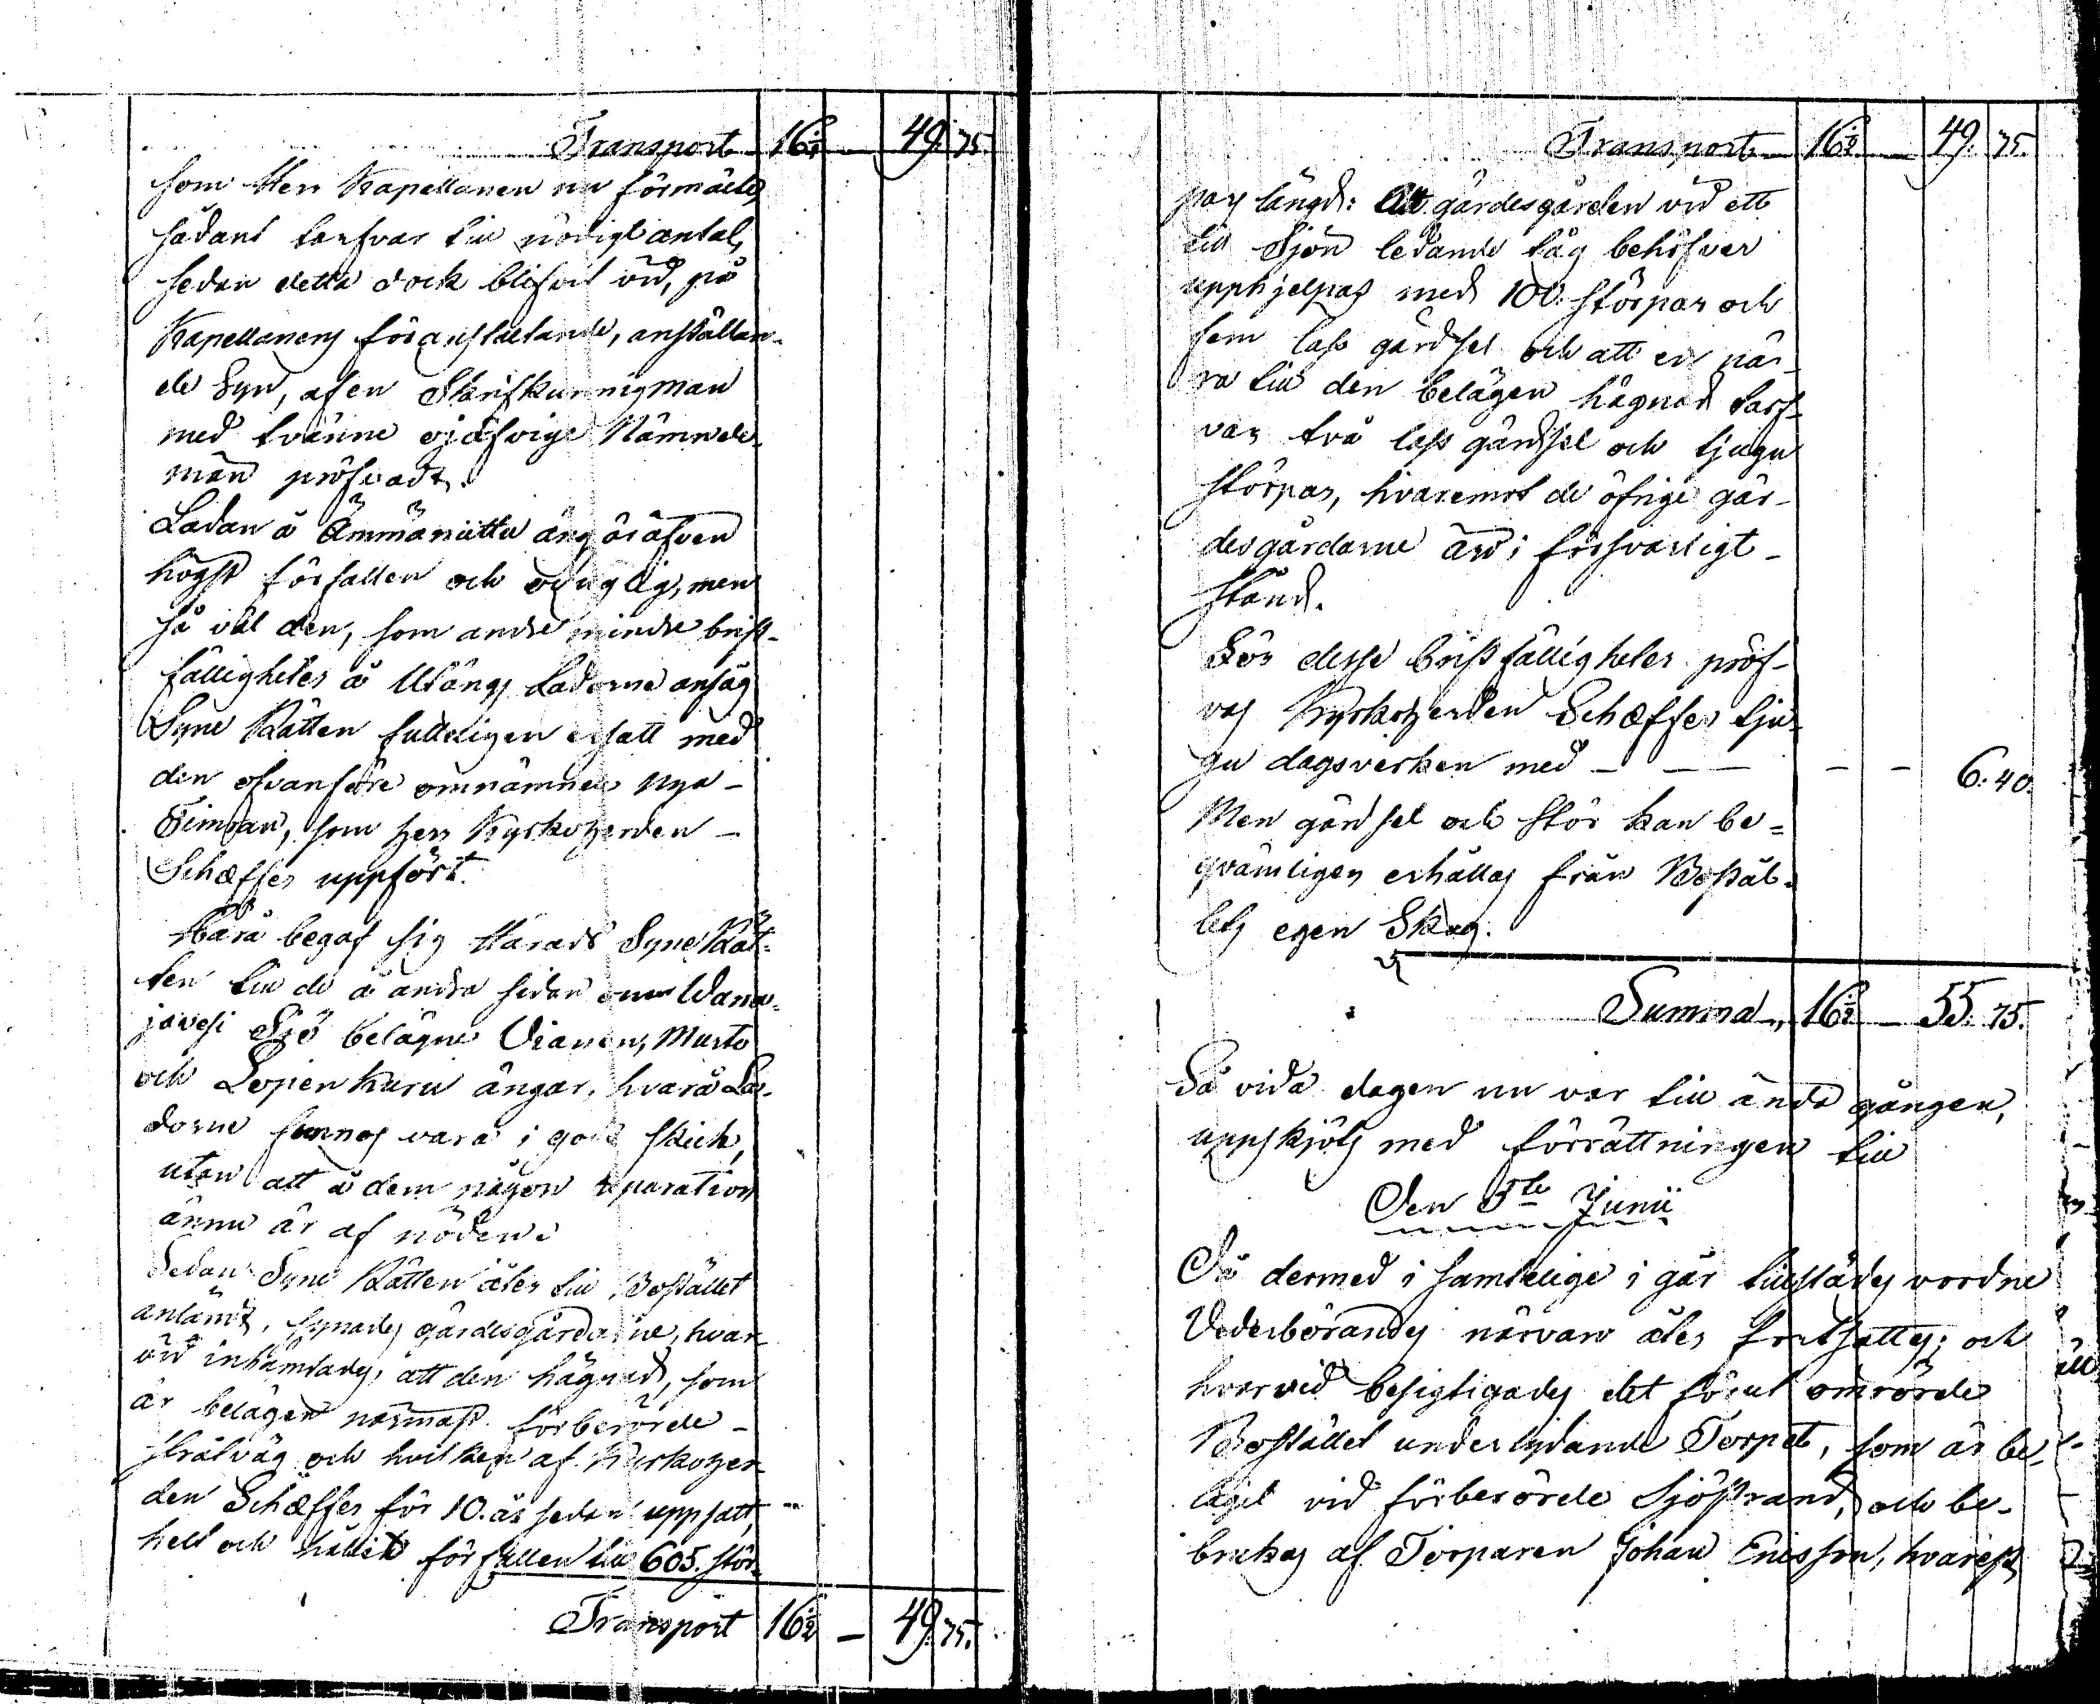 Transport 16½ — 49. 75.
som Herr Kapellanen nu förmäles
sådant tarfvar till nödigt antal,
sedan detta dock blifvit vid, på
Kapellanens föranstaltande, anställan-
de Syn, af en Skrifkunnig man
med tvänne ojäfvige Nämnde-
män pröfvadt.
Ladan å Ämmänitta äng är äfven
högst förfallen och oduglig, men
så väl den, som andre mindre brist-
fälligheter å Utängs Ladorne ansåg
Syne Rätten fulleligen ersatt med
den ofvanföre omnämnde nya
Timran, som Herr Kyrkoherden
Schæffer uppfört.
Härå begaf sig Härads Syne Rät-
ten till de å andra sidan om Wana-
javesi Sjö belägne Vianen, Musto
och Lepenkuru ängar, hvarå La-
dorne funnos vara i godt skick,
utan att å dem någon reparation
ännu är af nöden.
Sedan Syne Rätten åter till Bostället
anländt, synades gärdesgårdarne, hvar-
vid inhämtades, att den hägnad, som
är belägen närmast förberörde
stråtväg och hvilken af Kyrkoher-
den Schæffer för 10. år sedan uppsatt,
helt och hållit förfallen till 605. stör-
Transport 16½ — 49. 75.
Transport 16½ — 49. 75.
pars längd: Att gärdesgården vid ett
till Sjön ledande tåg behöfver
upphjelpas med 100. störpar och
fem lass gärdsel och att en nä-
ra till den belägen hägnad tarf-
var två lass gärdsel och tjugu
störpar, hvaremot de öfrige gär-
desgårdarne äro i försvarligt
stånd.
För desse bristfälligheter pröf-
vas Kyrkoherden Schæffer tju-
gu dagsverken med — — — — — 6. 40.
Men gärdsel och stör kan be-
qvämligen erhållas från Bostäl-
lets egen Skog.
Summa 16½ — 55. 75.
Så vida dagen nu var till ända gången,
uppskjöts med förrättningen till
Den 5te Junii
Då dermed i samtelige i går tillstädes vordne
Vederbörandes närvaro åter fortsattes; och
hvarvid besigtigades det förut omrörde
Bostället underlydande Torpet, som är be-
läget vid förberörde Sjöstrand, och be-
brukas af Torparen Johan Ericsson, hvarest